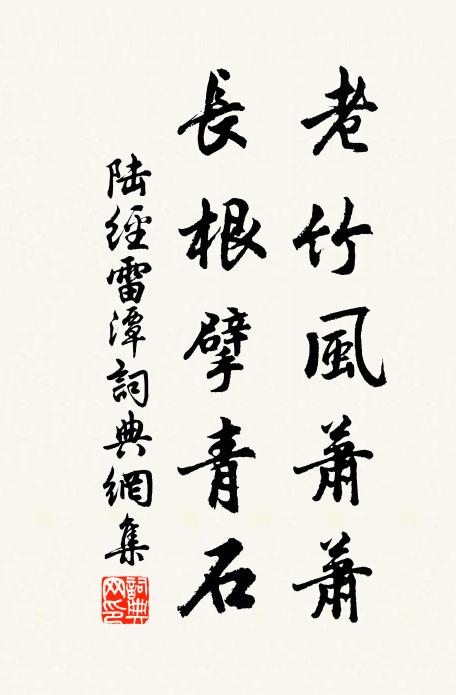 老竹風蕭蕭
長根擘青石
陸經雷潭詞典網集
詞典网印